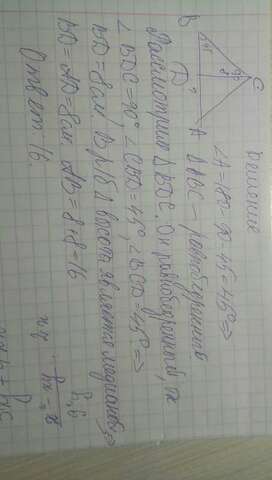 Решение
B
45°
90°
C
8
D
?
A
∠A=180-90-45=45° ⇒
ΔABC - равнобедренный
Рассмотрим ΔBDC. Он равнобедренный, тк
∠BDC=90°, ∠CBD=45°, ∠BCD=45° ⇒
BD=8см. В р/б Δ высота является медианой ⇒
BD=AD=8см. AB=8+8=16
Ответ: 16.